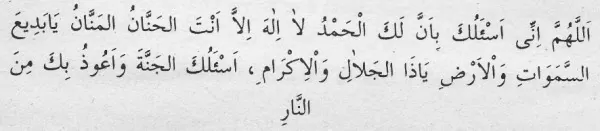 اَللّٰهُمَّ اِنِّى اَسْئَلُكَ بِاَنَّ لَكَ الْحَمْدُ لاٰ اِلٰهَ اِلاَّ اَنْتَ الْحَنَّانُ الْمَنَّانُ يَابَدِيعَ
السَّمَوَاتِ وَالْاَرْضِ يَاذَا الْجَلاٰلِ وَالْاِكْرَامِ، اَسْئَلُكَ الْجَنَّةَ وَاَعُوذُ بِكَ مِنَ
النَّارِ